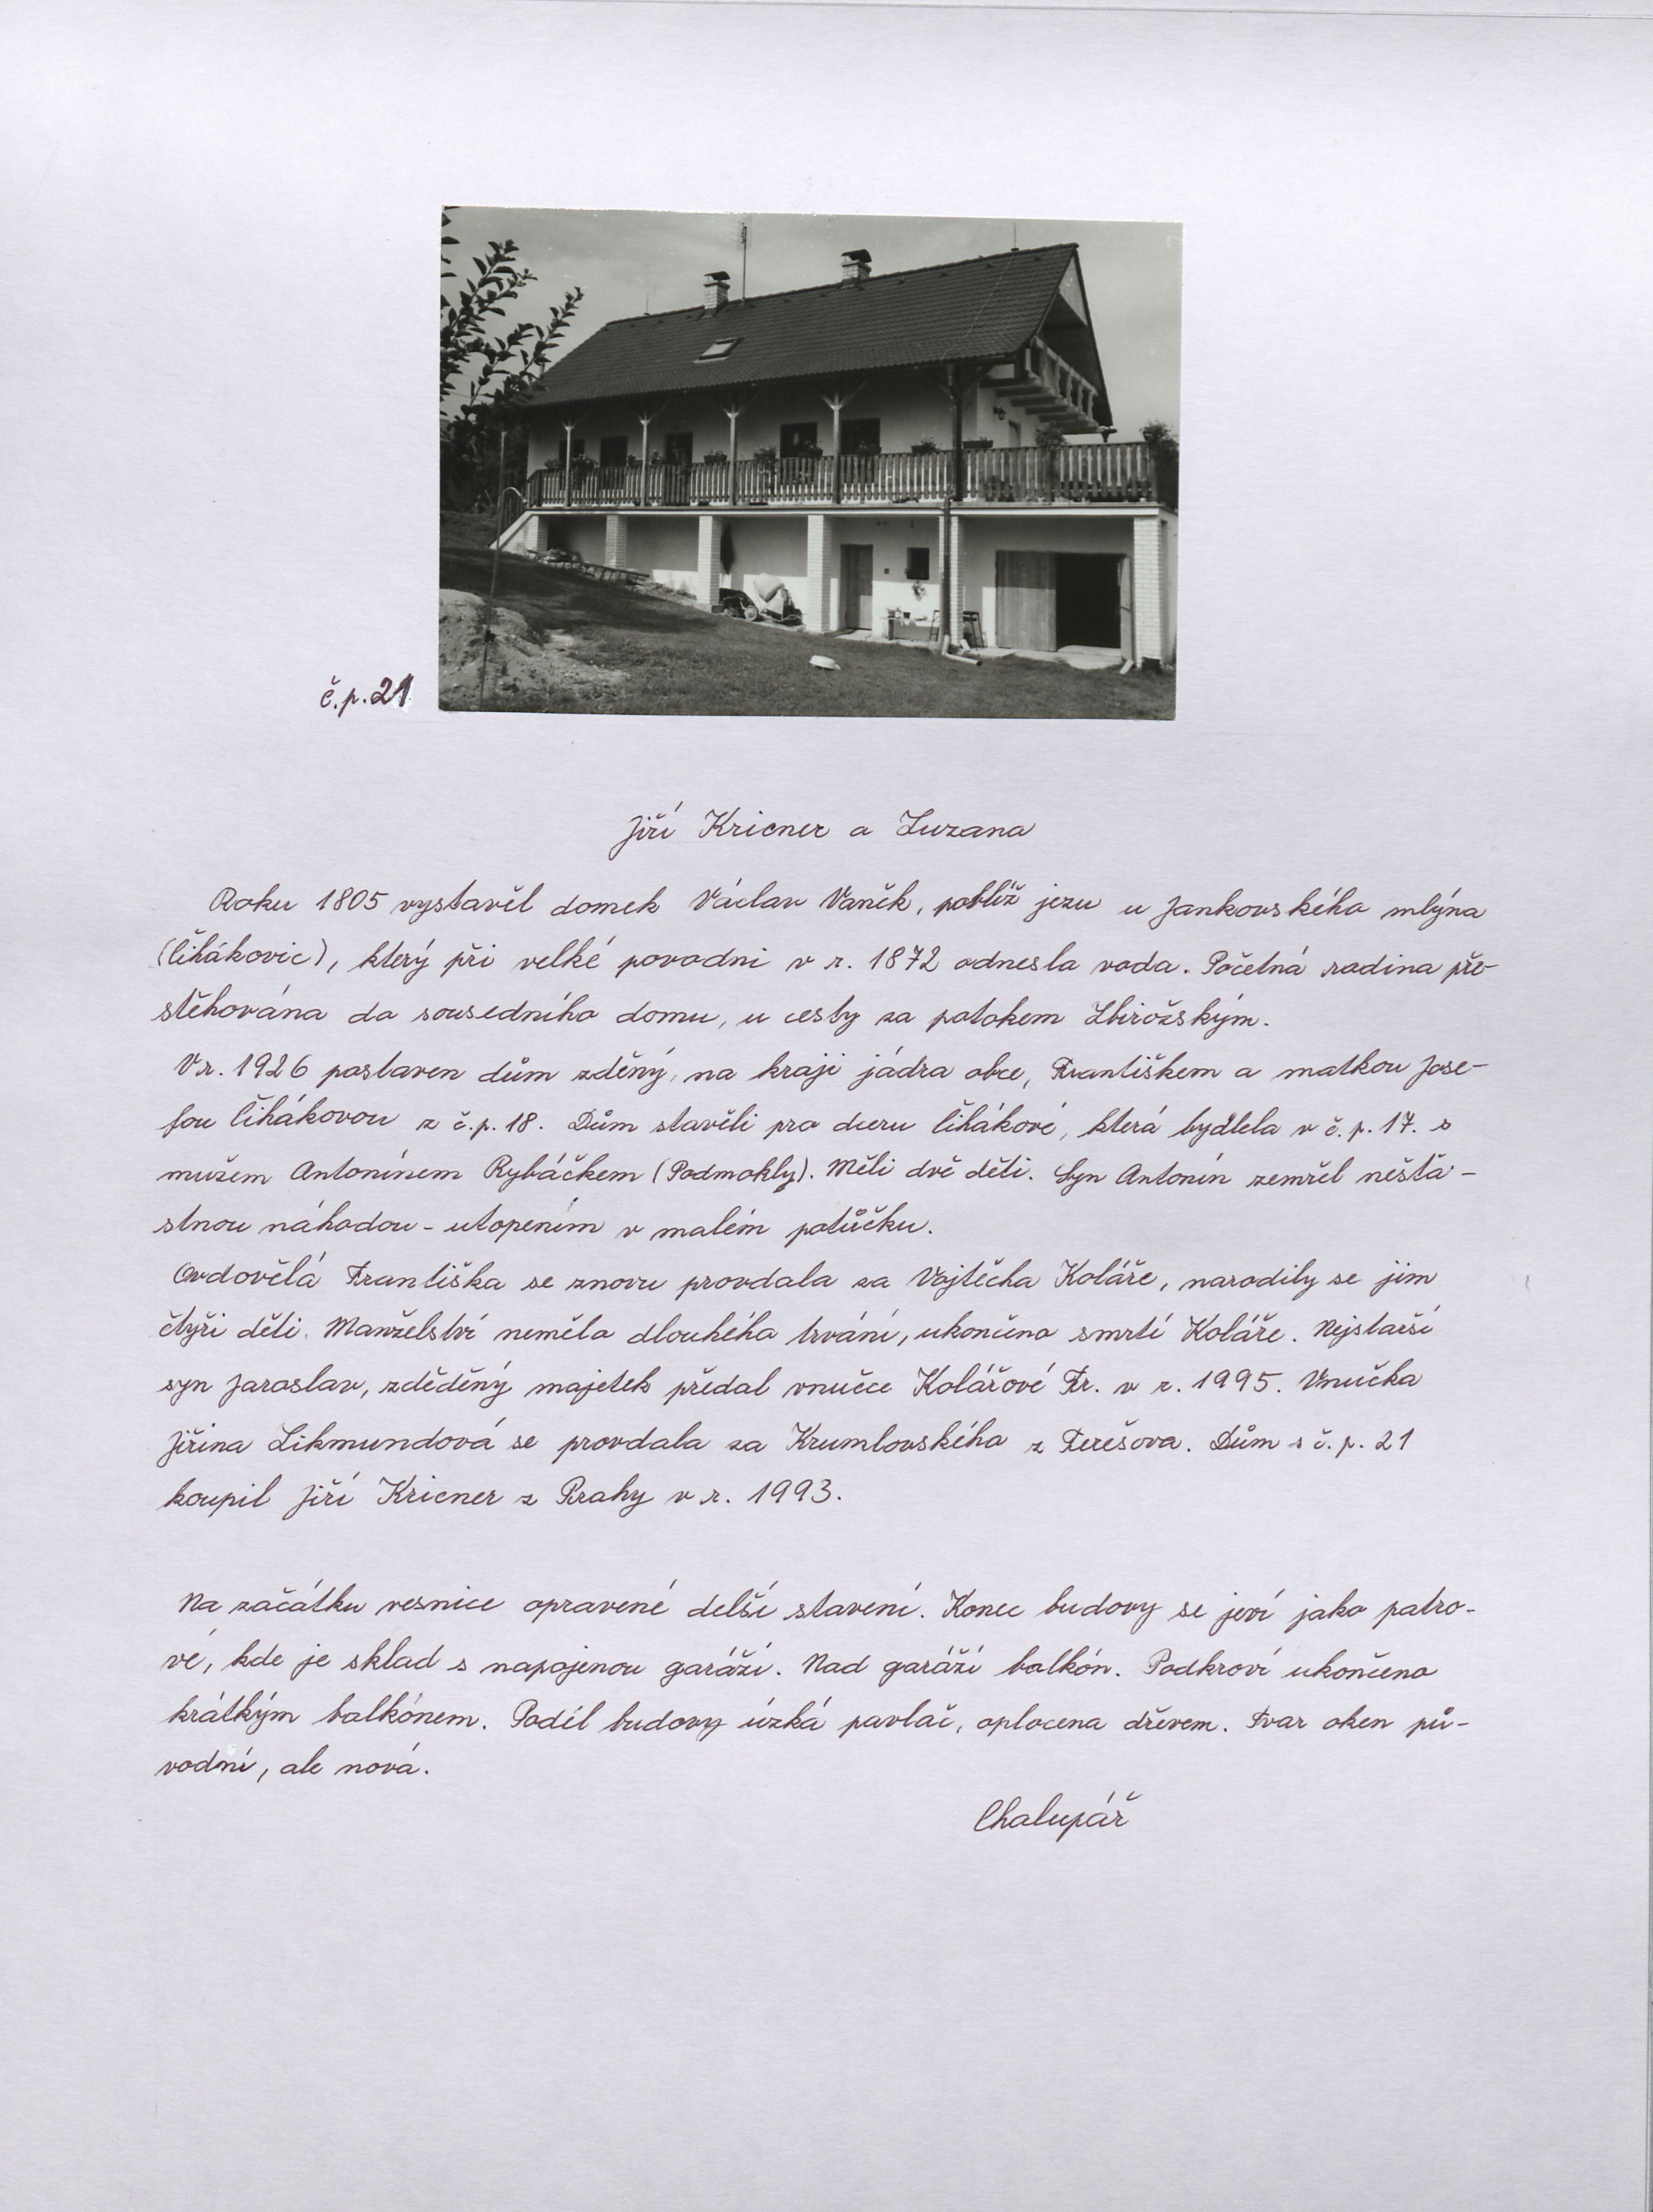 č.p.21
Jiří Kricner a Zuzana
Roku 1805 vystavěl domek Václav Vaněk, poblíž jezu u Jankovského mlýna
(Čihákovic), který při velké povodni v r. 1872 odnesla voda. Početná rodina pře-
stěhována do sousedního domu, u cesty za potokem Zbirožským.
V r. 1926 postaven dům zděný, na kraji jádra obce, Františkem a matkou Jose-
fou Čihákovou z č.p. 18. Dům stavěli pro dceru Čihákové, která bydlela v č.p. 17. s
mužem Antonínem Rybáčkem (Podmokly). Měli dvě děti. Syn Antonín zemřel nešťa-
stnou náhodou - utopením v malém potůčku.
Ovdovělá Františka se znovu provdala za Vojtěcha Koláře, narodily se jim
čtyři děti. Manželství nemělo dlouhého trvání, ukončeno smrtí Koláře. Nejstarší
syn Jaroslav, zděděný majetek předal vnučce Kolářové Fr. v r. 1995. Vnučka
Jiřina Zikmundová se provdala za Krumlovského z Terešova. Dům s č.p. 21
koupil Jiří Kricner z Prahy v r. 1993.
Na začátku vesnice opravené delší stavení. Konec budovy se jeví jako patro-
vé, kde je sklad s napojenou garáží. Nad garáží balkón. Podkroví ukončeno
krátkým balkónem. Podél budovy úzká pavlač, oplocena dřevem. Tvar oken pů-
vodní, ale nová.
Chalupář